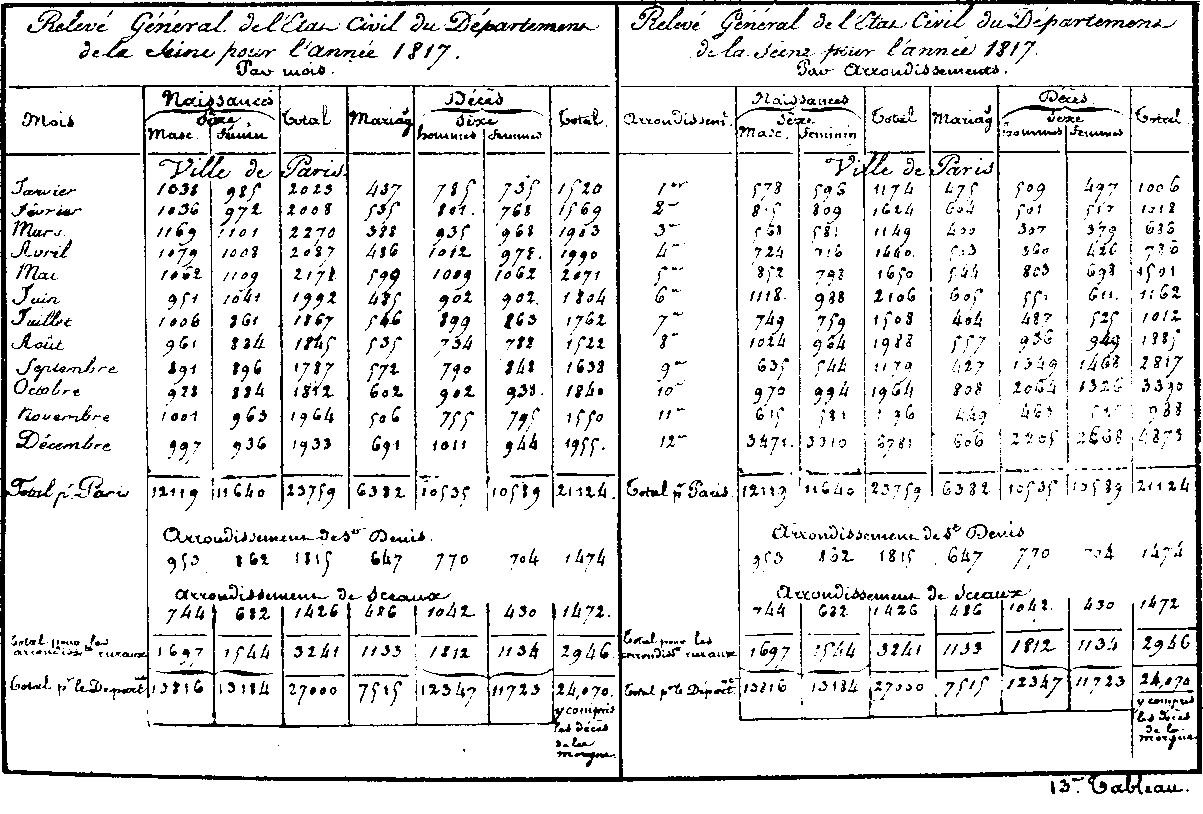 Relevé Général de l'Etat Civil du Département
de la Seine pour l'année 1817.
Par mois.
Mois Naissances Total Mariag. Décès Total.
Sexe Sexe
Masc. Fémin hommes femmes
Ville de Paris
Janvier 1038 985 2023 437 785 735 1520
Février 1036 972 2008 535 801. 768 1569
Mars. 1169 1101 2270 388 935 968 1903
Avril 1079 1008 2087 486 1012 978. 1990
Mai 1062 1109 2171 599 1009 1062 2071
Juin 951 1041 1992 485 902 902. 1804
Juillet 1006 861 1867 546 899 863 1762
Août 961 884 1845 535 734 788 1522
Septembre 891 896 1787 572 790 848 1638
Octobre 928 884 1812 602 902 938. 1840
Novembre 1001 963 1964 506 755 795 1550
Décembre 997 936 1933 691 1011 944 1955.
Total pr. Paris 12119 11640 23759 6382 10535 10589 21124.
Arrondissement de St. Denis.
953 862 1815 647 770 704 1474
Arrondissement de Sceaux
744 682 1426 486 1042 430 1472.
Total pour les
arrondisst. ruraux 1697 1544 3241 1133 1812 1134 2946
Total pr. le Départt. 13816 13184 27000 7515 12347 11723 24,070.
y compris
les décès
de la
morgue.
Relevé Général de l'Etat Civil du Département
de la Seine pour l'année 1817.
Par Arrondissements.
Arrondissent. Naissances Total Mariag. Décès Total
Sexe Sexe
Masc. Feminin hommes femmes
Ville de Paris
1er 578 596 1174 475 509 497 1006
2me 815 809 1624 604 501 517 1018
3me 568 581 1149 400 307 379 686
4me 724 716 1440. 503 360 426 786
5me 852 798 1650 544 803 698 1501
6me 1118. 988 2106 605 551 611. 1162
7me 749 759 1508 404 487 525 1012
8me 1024 964 1988 557 936 949 1885
9me 635 544 1179 427 1349 1468 2817
10me 970 994 1964 808 2064 1326 3390
11me 615 581 449 463 988
12me 3471. 3310 6781 606 2205 2668 4873
Total pr. Paris. 12119 11640 23759 6382 10535 10589 21124
Arrondissement de St. Denis
953 862 1815 647 770 704 1474
Arrondissement de Sceaux
744 682 1426 486 1042. 430 1472
Total pour les
arrondisst. ruraux 1697 1544 3241 1133 1812 1134 2946
Total pr. le Départt. 13816 13184 27000 7515 12347 11723 24,070
y compris
les décès
de la
morgue
13me Tableau.